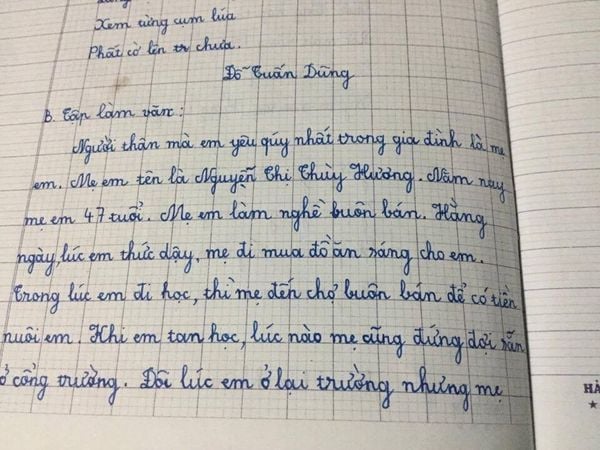 Xem từng cụm lúa
Phất cờ lên tr chưa.
Đỗ Tuấn Dũng
B. Tập làm văn:
Người thân mà em yêu quý nhất trong gia đình là mẹ
em. Mẹ em tên là Nguyễn Thị Thùy Hương. Năm nay
mẹ em 47 tuổi. Mẹ em làm nghề buôn bán. Hằng
ngày, lúc em thức dậy, mẹ đi mua đồ ăn sáng cho em.
Trong lúc em đi học, thì mẹ đến chợ buôn bán để có tiền
nuôi em. Khi em tan học, lúc nào mẹ cũng đứng đợi sẵn
ở cổng trường. Đôi lúc em ở lại trường nhưng mẹ
HÀ